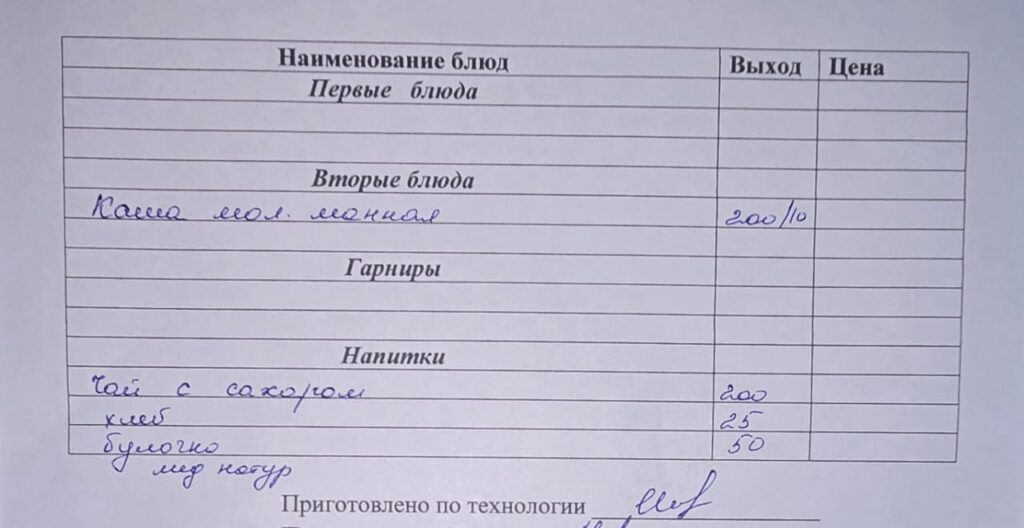 Наименование блюд Выход Цена
Первые блюда
Вторые блюда
Каша мол. манная 200/10
Гарниры
Напитки
Чай с сахаром 200
хлеб 25
булочка 50
мед натур
Приготовлено по технологии